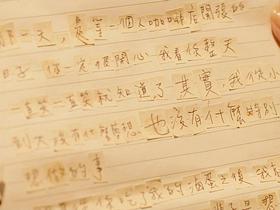 一天，是全一個人咖啡店開張的
日子，你一定很開心，我看你整天
一直笑一直笑就知道了，其實，我從小
到大沒有什麼夢想，也沒有什麼特別
想做的事
你吃了我的滷蛋之後，我